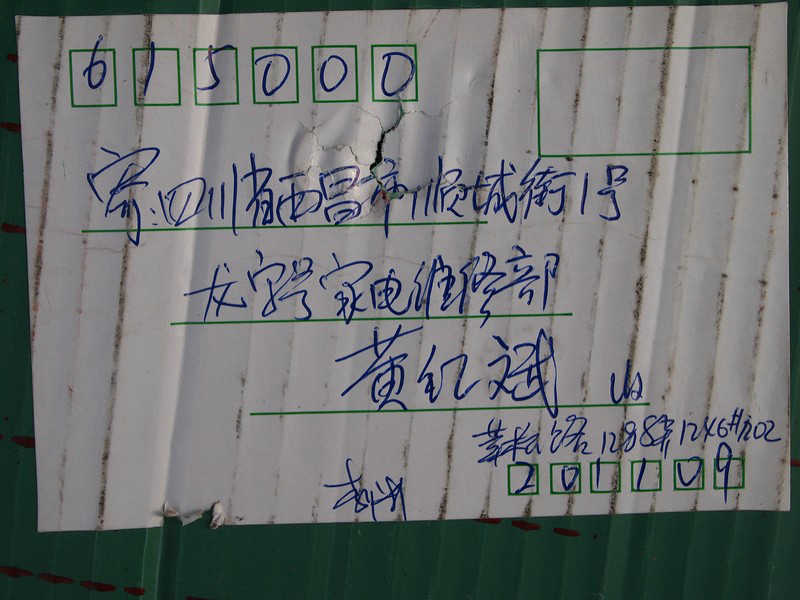 615000
寄:四川省西昌市顺城街1号
龙字号家电维修部
黄红斌 收
莘松路1288弄124号702
201109